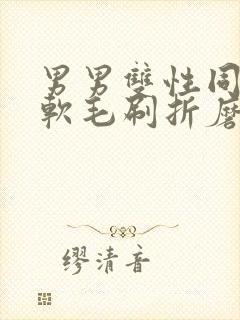 男男雙性同
軟毛刷折磨
繆清音